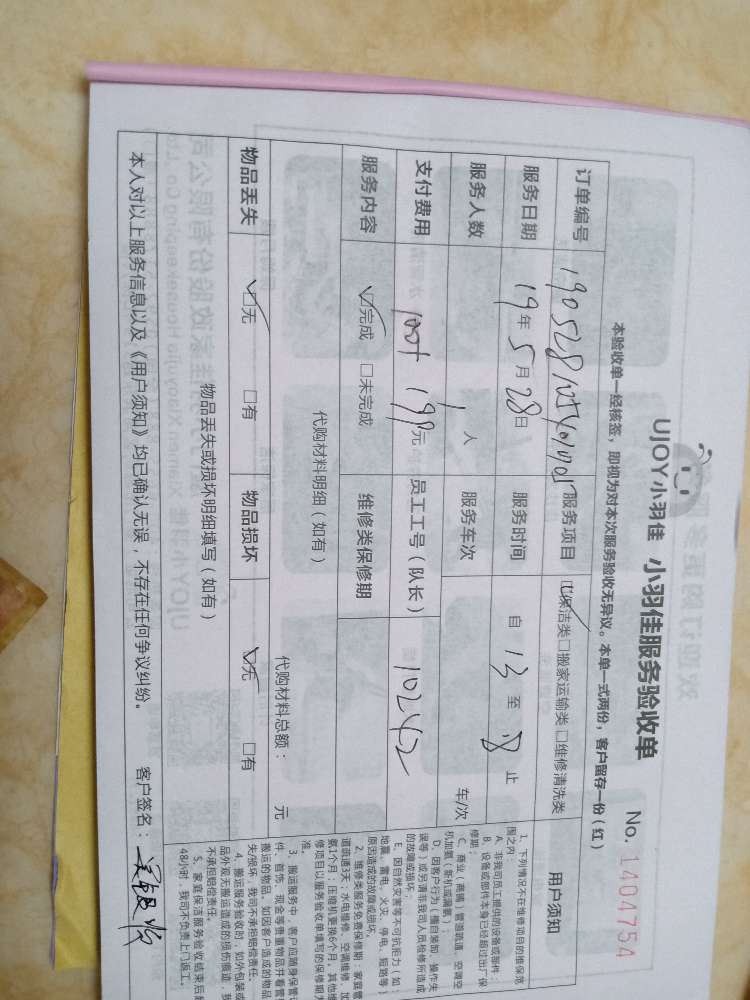 UJOY小羽佳 小羽佳服务验收单
No. 1404754
本验收单一经核签，即视为对本次服务验收无异议。本单一式两份，客户留存一份（红）
订单编号 服务项目 ☑保洁类□搬家运输类□维修清洗类
服务日期 19年5月28日 服务时间 自 13 至 止
服务人数 1 人 服务车次 车/次
支付费用 100+199元 员工工号（队长）
服务内容 ☑完成 □未完成 维修类保修期
代购材料明细（如有） 代购材料总额： 元
物品丢失 ☑无 □有 物品损坏 ☑无 □有
物品丢失或损坏明细填写（如有）
本人对以上服务信息以及《用户须知》均已确认无误，不存在任何争议纠纷。 客户签名：
用户须知
1、下列情况不在维修项目的维保范
围之内：
A、非我司员工提供的设备或部件；
B、设备或部件本身已经超过出厂保
修期；
C、商业（商铺）管道疏通、空调空
机加氟（新机或漏氟）；
D、因客户行为（擅自装卸、操作失
误等）或另请非我司人员检修所造成
的故障或损坏；
E、因自然灾害等不可抗拒力（如：
地震、雷电、火灾、停电、短路等）
原因造成的故障或损坏。
2、维修类服务免费保修期：家庭管
道疏通3天；水电维修、空调维修、加
氨1个月；压缩机更换6个月，其他维
修项目以服务验收单填写的保修期为
准。
3、搬运服务中，客户应随身保管
件、首饰、现金等贵重物品并看管
搬运的物品，如因客户造成的物品
失/损坏，我司不承担赔偿责任。
4、搬运服务验收时，如外包装或
品外观无搬运造成的损伤痕迹，我
不承担赔偿责任。
5、家庭保洁服务验收结束后超
48小时，我司不负责上门返工。